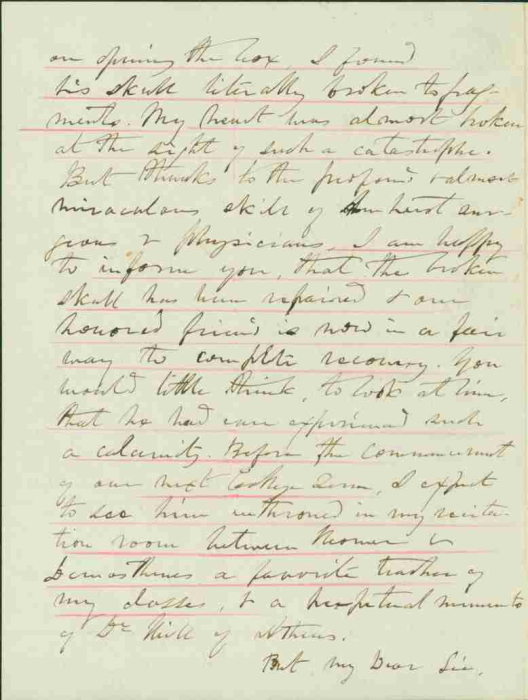 on opening the box, I found
his skull literally broken to frag-
ments. My heart was almost broken
at the sight of such a catastrophe.
But thanks to the profound & almost
miraculous skill of Amherst sur-
geons & physicians, I am happy
to inform you, that the broken
skull has been repaired & our
honored friend is now in a fair
way to complete recovery. You
would little think, to look at him,
that he had ever experienced such
a calamity. Before the commencement
of our next College Term, I expect
to see him enthroned in my recita-
tion room between Homer &
Demosthenes a favorite teacher of
my classes, & a perpetual memento
of Dr Hill of Athens.
But my Dear Sir,